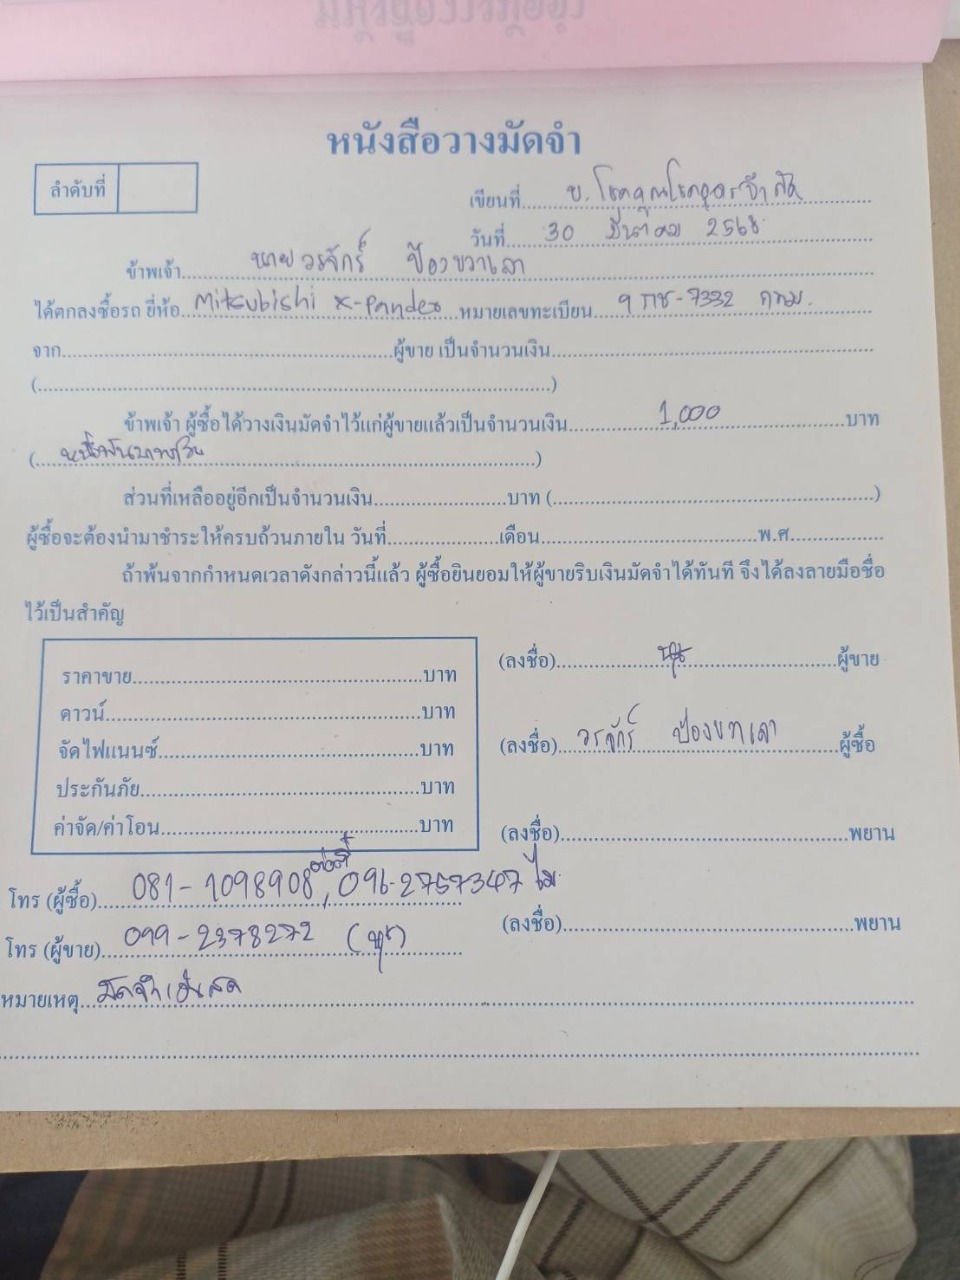 หนังสือวางมัดจำ
ลำดับที่
เขียนที่ บ.โชคคูณโชคออโต้จำกัด
วันที่ 30 มีนาคม 2568
ข้าพเจ้า นายวรจักร์ ป้องขวาเลา
ได้ตกลงซื้อรถ ยี่ห้อ Mitsubishi X-Pander หมายเลขทะเบียน 9กช-7332 กทม.
จาก ผู้ขาย เป็นจำนวนเงิน
( )
ข้าพเจ้า ผู้ซื้อได้วางเงินมัดจำไว้แก่ผู้ขายแล้วเป็นจำนวนเงิน 1,000 บาท
( หนึ่งพันบาทถ้วน )
ส่วนที่เหลืออยู่อีกเป็นจำนวนเงิน บาท ( )
ผู้ซื้อจะต้องนำมาชำระให้ครบถ้วนภายใน วันที่ เดือน พ.ศ.
ถ้าพ้นจากกำหนดเวลาดังกล่าวนี้แล้ว ผู้ซื้อยินยอมให้ผู้ขายริบเงินมัดจำได้ทันที จึงได้ลงลายมือชื่อ
ไว้เป็นสำคัญ
ราคาขาย บาท
ดาวน์ บาท
จัดไฟแนนซ์ บาท
ประกันภัย บาท
ค่าจัด/ค่าโอน บาท
(ลงชื่อ) ผู้ขาย
(ลงชื่อ) วรจักร์ ป้องขวาเลา ผู้ซื้อ
(ลงชื่อ) พยาน
(ลงชื่อ) พยาน
โทร (ผู้ซื้อ) 081-1098908, 096-2757347
โทร (ผู้ขาย) 099-2378272
หมายเหตุ มัดจำเงินสด